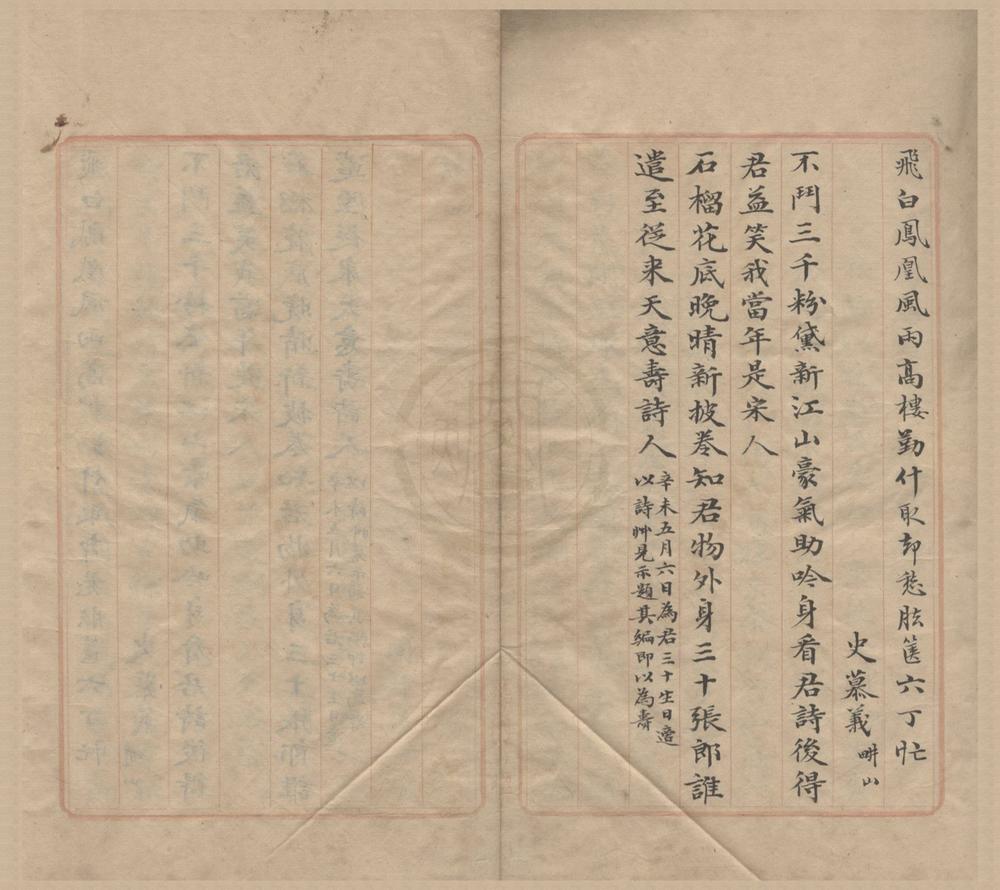 飛白鳳凰風雨高樓勤什取却愁胠篋六丁忙
史慕義畊山
不鬥三千粉黛新江山豪氣助吟身看君詩後得
君益笑我當年是宋人
石榴花底晚晴新披卷知君物外身三十張郎誰
遣至從来天意壽詩人
辛未五月六日為君三十生日適
以詩艸見示題其編即以為壽